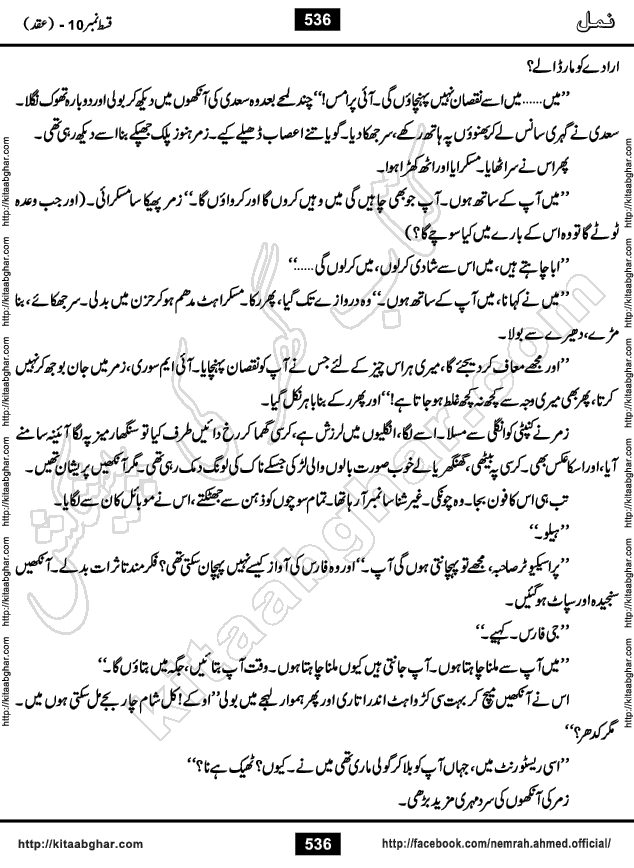 نمل
536
قسط نمبر 10 - (عقد)
ارادے کو مار ڈالے؟
”میں...... میں اسے نقصان نہیں پہنچاؤں گی۔ آئی پرامس!“ چند لمحے بعد وہ سعدی کی آنکھوں میں دیکھ کر بولی اور دوبارہ تھوک نگلا۔
سعدی نے گہری سانس لے کر بھنوؤں پہ ہاتھ رکھے، سر جھکا دیا۔ گویا تنے اعصاب ڈھیلے کیے۔ زمر ہنوز پلک جھپکے بنا اسے دیکھ رہی تھی۔
پھر اس نے سر اٹھایا۔ مسکرایا اور اٹھ کھڑا ہوا۔
”میں آپ کے ساتھ ہوں۔ آپ جو بھی چاہیں گی میں وہیں کروں گا اور کرواؤں گا۔“ زمر پھیکا سا مسکرائی۔ (اور جب وعدہ
ٹوٹے گا تو وہ اس کے بارے میں کیا سوچے گا؟)
”ابا چاہتے ہیں، میں اس سے شادی کر لوں، میں کر لوں گی......“
”میں نے کہا نا، میں آپ کے ساتھ ہوں۔“ وہ دروازے تک گیا، پھر رکا۔ مسکراہٹ مدھم ہو کر حزن میں بدلی۔ سر جھکائے، بنا
مڑے، دھیرے سے بولا۔
”اور مجھے معاف کر دیجئے گا، میری ہر اس چیز کے لئے جس نے آپ کو نقصان پہنچایا۔ آئی ایم سوری، زمر میں جان بوجھ کر نہیں
کرتا، پھر بھی میری وجہ سے کچھ نہ کچھ غلط ہو جاتا ہے!“ اور پھر رکے بنا باہر نکل گیا۔
زمر نے کنپٹی کو انگلی سے مسلا۔ اسے لگا، انگلیوں میں لرزش ہے، کرسی گھما کر رخ دائیں طرف کیا تو سنگھار میز پہ لگا آئینہ سامنے
آیا، اور اسکا عکس بھی۔ کرسی پہ بیٹھی، گھنگھریالے خوب صورت بالوں والی لڑکی جسکے ناک کی لونگ دمک رہی تھی۔ مگر آنکھیں پریشان تھیں۔
تب ہی اس کا فون بجا۔ وہ چونکی۔ غیر شناسا نمبر آ رہا تھا۔ تمام سوچوں کو ذہن سے جھٹکتے، اس نے موبائل کان سے لگایا۔
”ہیلو۔“
”پراسیکیوٹر صاحبہ، مجھے تو پہچانتی ہوں گی آپ۔“ اور وہ فارس کی آواز کیسے نہیں پہچان سکتی تھی؟ فکر مند تاثرات بدلے۔ آنکھیں
سنجیدہ اور سپاٹ ہو گئیں۔
”جی فارس۔ کہیے۔“
”میں آپ سے ملنا چاہتا ہوں۔ آپ جانتی ہیں کیوں ملنا چاہتا ہوں۔ وقت آپ بتائیں، جگہ میں بتاؤں گا۔“
اس نے آنکھیں میچ کر بہت سی کڑواہٹ اندر اتاری اور پھر ہموار لہجے میں بولی ”اوکے! کل شام چار بجے مل سکتی ہوں میں۔
مگر کدھر؟“
”اسی ریسٹورنٹ میں، جہاں آپ کو بلا کر گولی ماری تھی میں نے۔ کیوں؟ ٹھیک ہے نا؟“
زمر کی آنکھوں کی سرد مہری مزید بڑھی۔
http://kitaabghar.com
536
http://facebook.com/nemrah.ahmed.official/
http://kitaabghar.com http://kitaabghar.com http://kitaabghar.com http://kitaabghar.com http://kitaabghar.com http://kitaabghar.com
http://kitaabghar.com http://kitaabghar.com http://kitaabghar.com http://kitaabghar.com http://kitaabghar.com http://kitaabghar.com
کتاب گھر کی پیشکش
kitaabghar.com